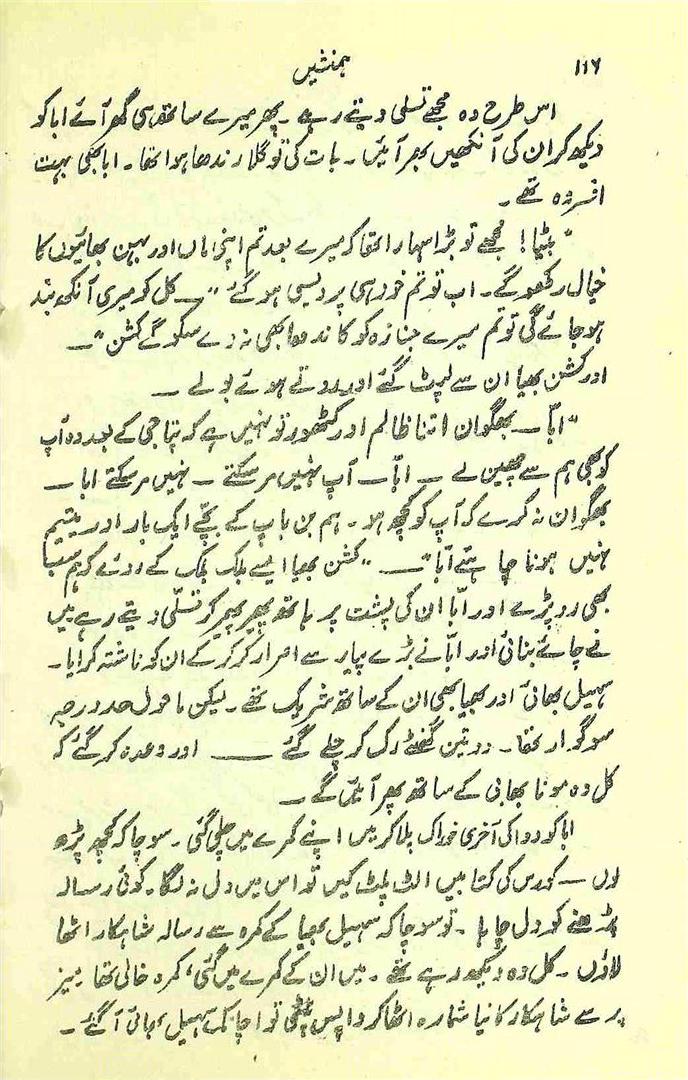 ہمنشیں ۱۱۶
اس طرح وہ مجھے تسلی دیتے رہے۔ پھر میرے ساتھ ہی گھر آئے ابا کو
دیکھ کر ان کی آنکھیں بھر آئیں۔ بات کی تو گلا رندھا ہوا تھا۔ ابا بھی بہت
افسردہ تھے۔
"بیٹا! مجھے تو بڑا سہارا تھا کہ میرے بعد تم اپنی ماں اور بہن بھائیوں کا
خیال رکھو گے۔ اب تو تم خود ہی پردیسی ہو گئے" — کل کو میری آنکھ بند
ہو جائے گی تو تم میرے جنازہ کو کاندھا بھی نہ دے سکو گے کشن" —
اور کشن بھیا ان سے لپٹ گئے اور روتے ہوئے بولے —
"ابّا — بھگوان اتنا ظالم اور کٹھور تو نہیں ہے کہ پتا جی کے بعد وہ آپ
کو بھی ہم سے چھین لے — ابّا — آپ نہیں مر سکتے — نہیں مر سکتے ابا —
بھگوان نہ کرے کہ آپ کو کچھ ہو۔ ہم بن باپ کے بچے ایک بار اور یتیم
نہیں ہونا چاہتے ابّا" — "کشن بھیا ایسے بلک بلک کے روئے کہ ہم سب
بھی رو پڑے اور ابّا ان کی پشت پر ہاتھ پھیر پھیر کر تسلّی دیتے رہے میں
نے چائے بنائی اور ابّا نے بڑے پیار سے اصرار کر کر کے ان کو ناشتہ کرایا۔
سہیل بھائی اور بھیا بھی ان کے ساتھ شریک تھے۔ لیکن ماحول حد درجہ
سوگوار تھا۔ دو تین گھنٹے رک کر چلے گئے — اور وعدہ کر گئے کہ
کل وہ مونا بھابی کے ساتھ پھر آئیں گے —
ابا کو دوا کی آخری خوراک پلا کر میں اپنے کمرے میں چلی گئی۔ سوچا کہ کچھ پڑھ
لوں — کورس کی کتابیں الٹ پلٹ کیں تو اس میں دل نہ لگا۔ کوئی رسالہ
پڑھنے کو دل چاہا۔ تو سوچا کہ سہیل بھیا کے کمرہ سے رسالہ شاہکار اٹھا
لاؤں۔ کل وہ دیکھ رہے تھے۔ میں ان کے کمرے میں گئی، کمرہ خالی تھا۔ میز
پر سے شاہکار کا نیا شمارہ اٹھا کر واپس پلٹی تو اچانک سہیل بھائی آ گئے۔